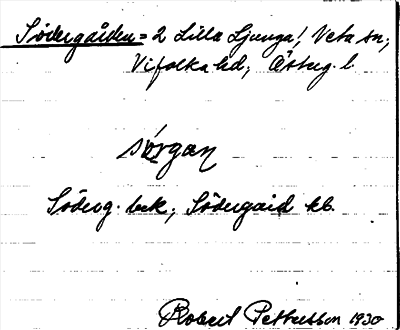 Södergården = 2 Lilla Ljunga!, Veta sn,
Vifolka hd, Östrg. l.
sørgan
Söderg. bek; Södergård kb.
Robert Pettersson 1930